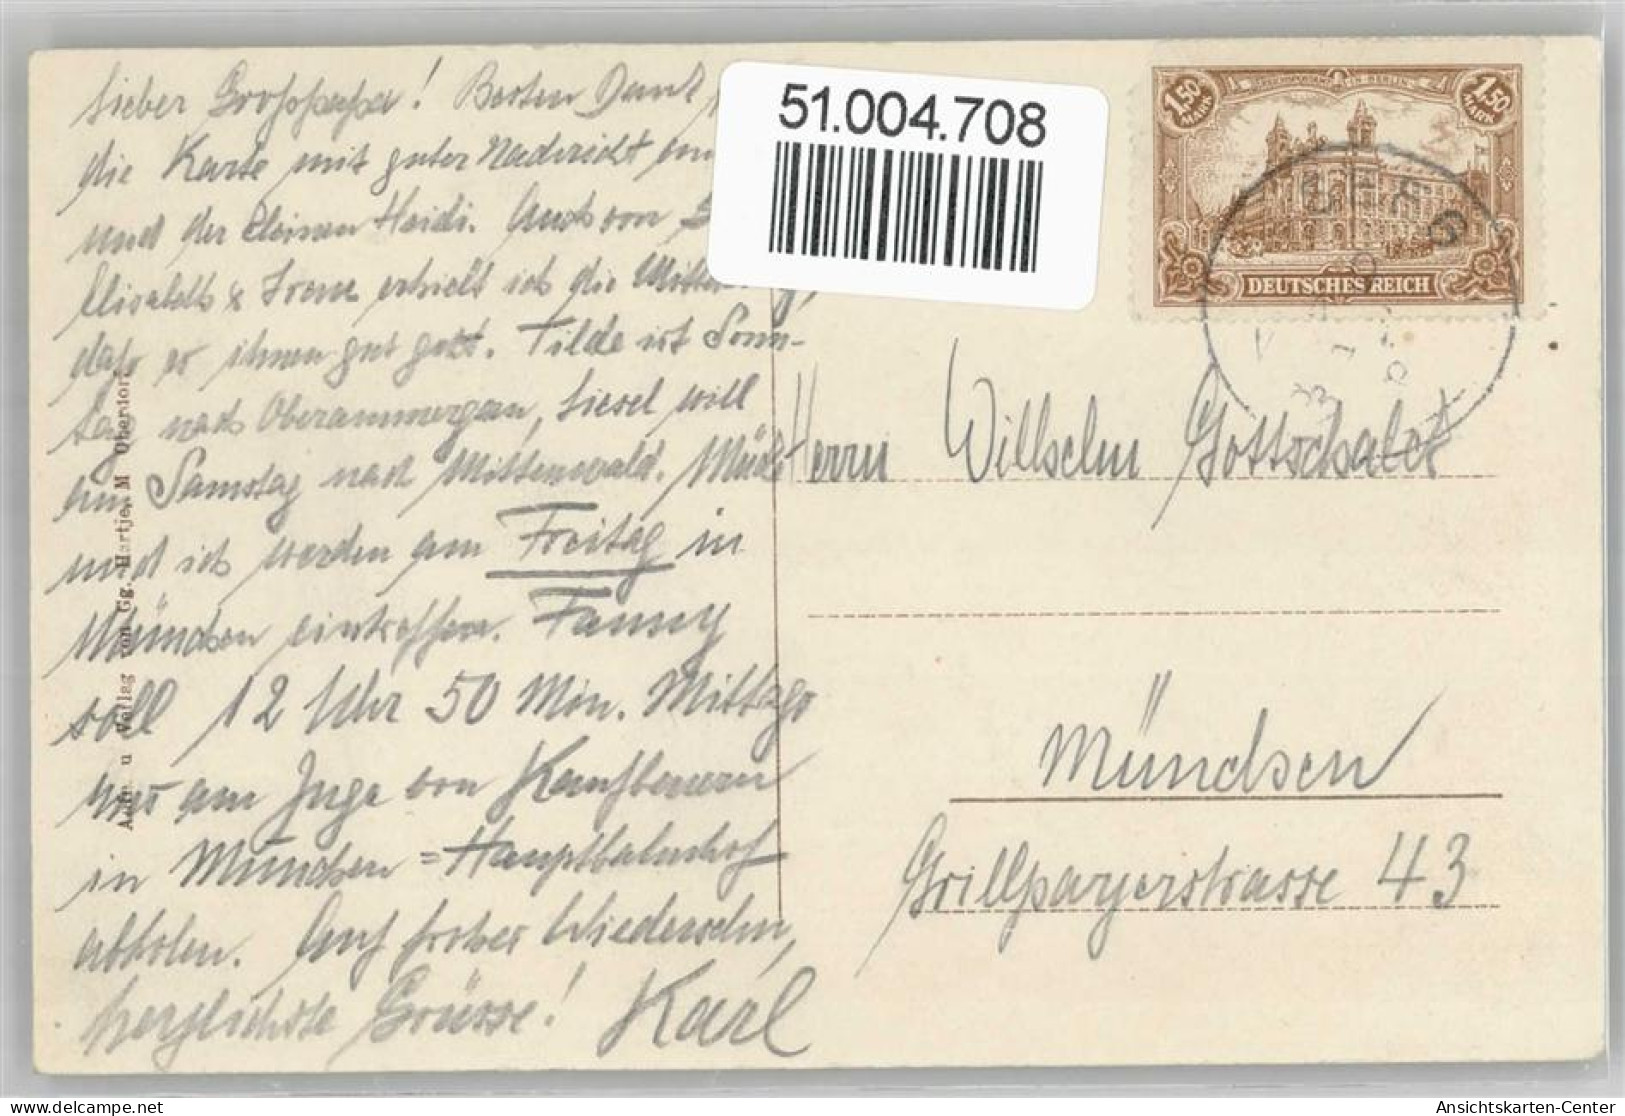 Lieber Grosspapa! Besten Dank
die Karte mit guter Nachricht
und der kleinen Heidi. Auch von
Elisabeth & Irene erhielt ich die
dass es ihnen gut geht. Tilde ist Sonn-
tag nach Oberammergau, Liesel will
am Samstag nach Mittenwald.
und ich werden am Freitag in
München eintreffen. Fanny
soll 12 Uhr 50 Min. Mittags
uns am Zuge von Kaufbeuren
in München = Hauptbahnhof
abholen. Auf frohes Wiedersehn,
herzlichste Grüsse! Karl
51.004.708
1,50 MARK
1,50 MARK
DEUTSCHES REICH
Herrn Wilhelm Gottschalk
München
Grillparzerstrasse 43
Verlag von Gg. Hartje, M Oberdorf
delcampe.net
Ansichtskarten-Center